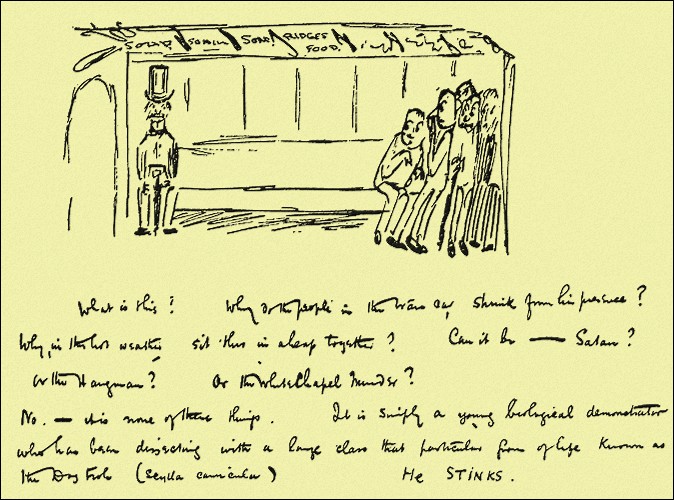 SOAP SOAP BRIDGES
FOOD
What is this? Why do the people in the tram car shrink from his presence?
Why, in the hot weather sit thus in a heap together? Can it be — Satan?
Or the Hangman? Or the WhiteChapel Murder?
No. — it is none of these things. It is simply a young biological demonstrator
who has been dissecting with a large class that particular form of life known as
the Dog fish (Scylla canicular) He STINKS.